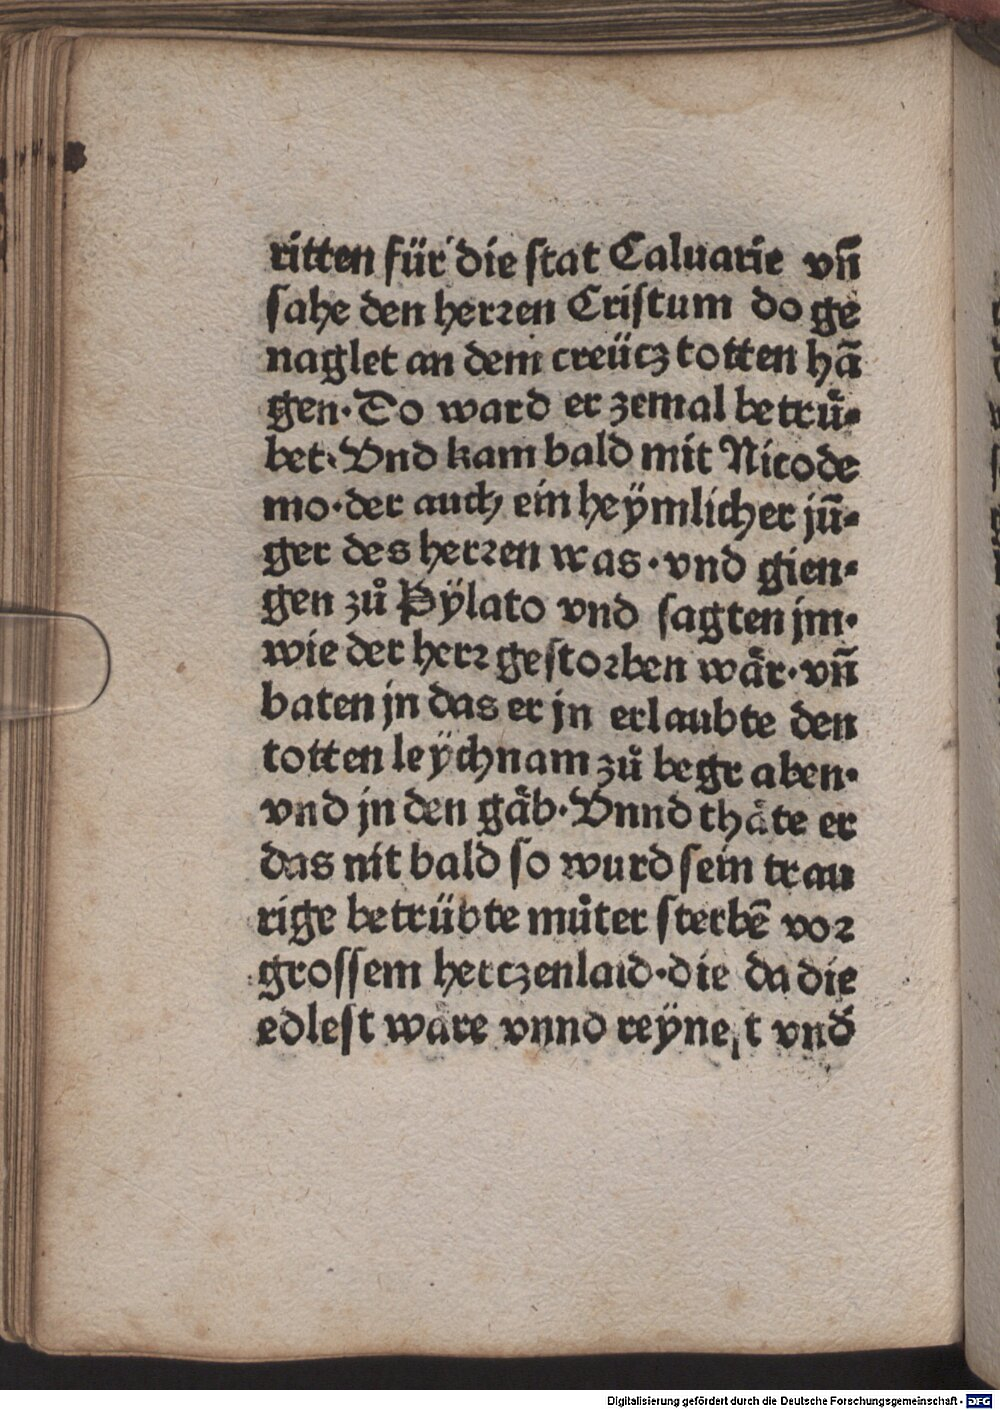 ritten für die ſtat Caluarie vñ
ſahe den herꝛen Criſtum do ge
naglet an dem creücz totten hā
gen·Do ward er zemal betruͤ⸗
bet·Vnd kam bald mit Nicode
mo·der auch ein heÿmlicher jū⸗
ger des herꝛen was·vnd gien⸗
gen zuͦ Pÿlato vnd ſagten jm·
wie der herꝛ geſtoꝛben waͤr·vñ
baten jn das er jn erlaubte den
totten leÿchnam zuͦ begraben·
vnd jn den gaͤb·Vnnd thaͤte er
das nit bald ſo wurd ſein trau
rige betrübte muͦter ſterbē voꝛ
groſſem hertzenlaid·die da die
edleſt waͤre vnnd reÿneſt vnd̓
Digitalisierung gefördert durch die Deutsche Forschungsgemeinschaft - DFG